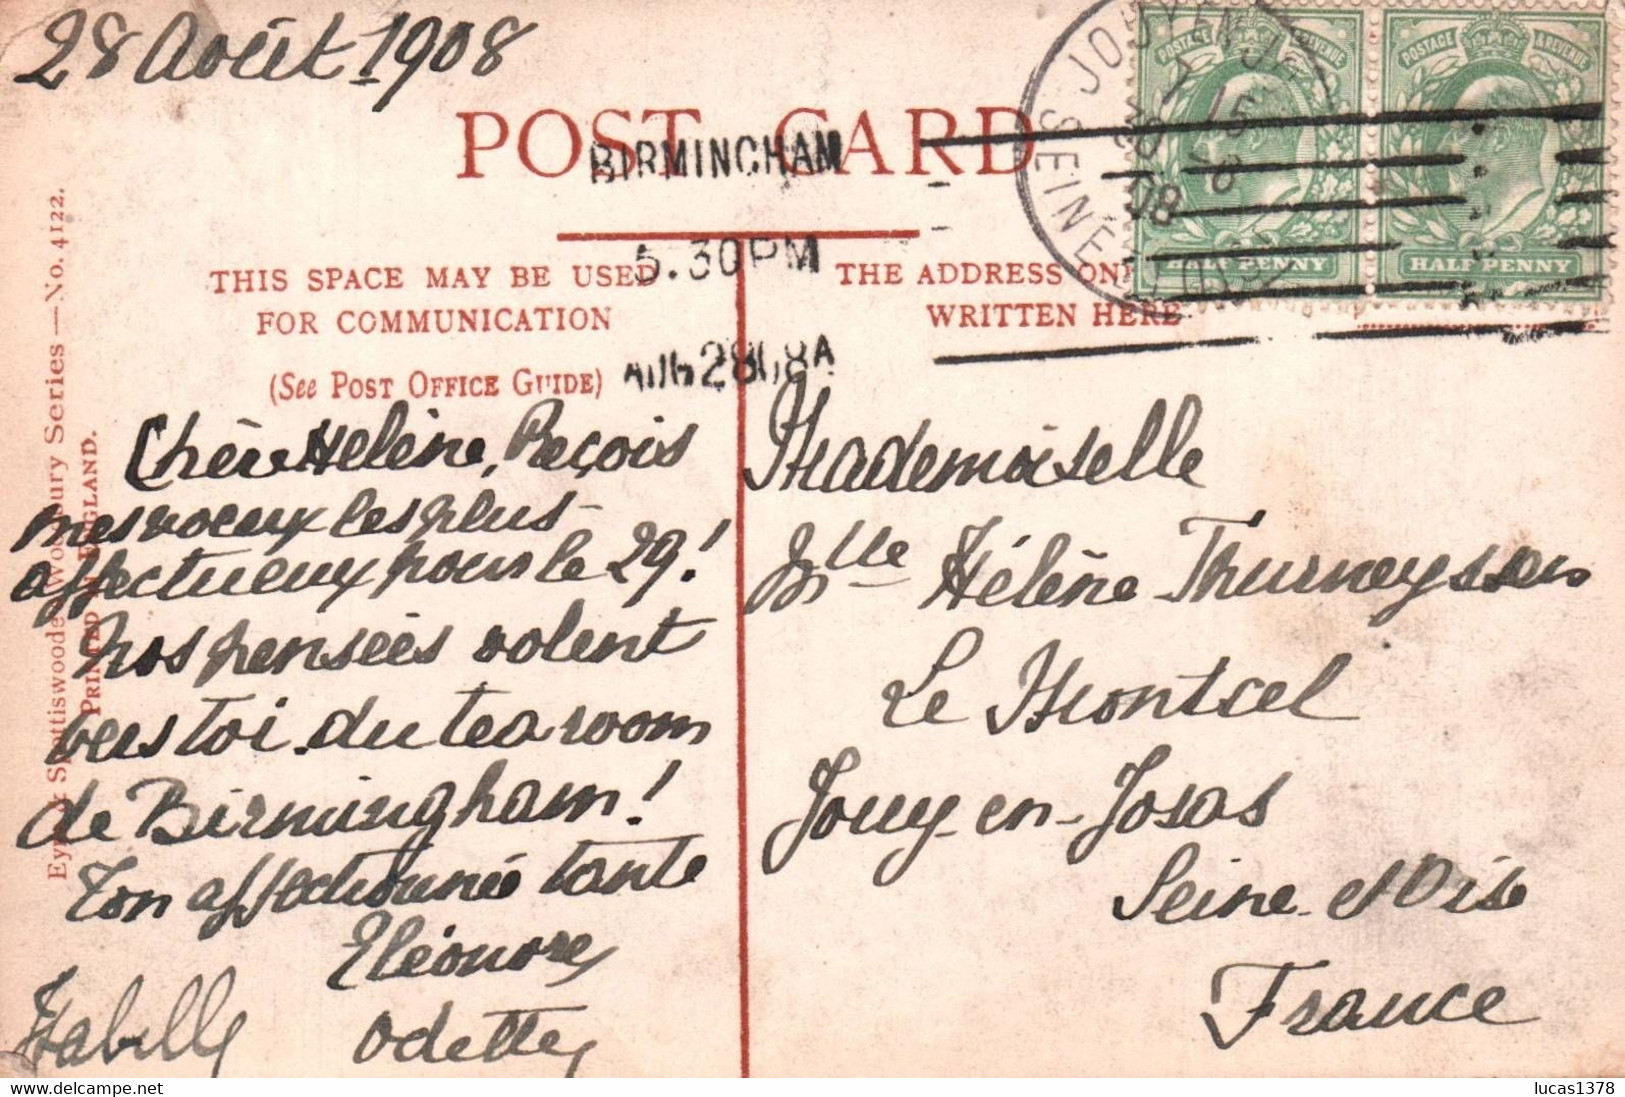 28 Août 1908
POST CARD
BIRMINGHAM
5.30PM
AUG 28 08 A
THIS SPACE MAY BE USED
FOR COMMUNICATION
(See POST OFFICE GUIDE)
THE ADDRESS ON
WRITTEN HERE
POSTAGE & REVENUE
HALF PENNY
POSTAGE & REVENUE
HALF PENNY
JOUY-EN-JOSAS
15
30 -8
08
SEINE-ET-OISE
Eyre & Spottiswoode, Woodbury Series—No. 4122.
PRINTED IN ENGLAND.
Chère Hélène, Reçois
mes voeux les plus
affectueux pour le 29!
Nos pensées volent
vers toi du tea room
de Birmingham!
Ton affectionnée tante
Eléonore
Isabelle Odette
Mademoiselle
Mlle Hélène Thurneyssen
Le Montcel
Jouy-en-Josas
Seine et Oise
France
delcampe.net
lucas1378